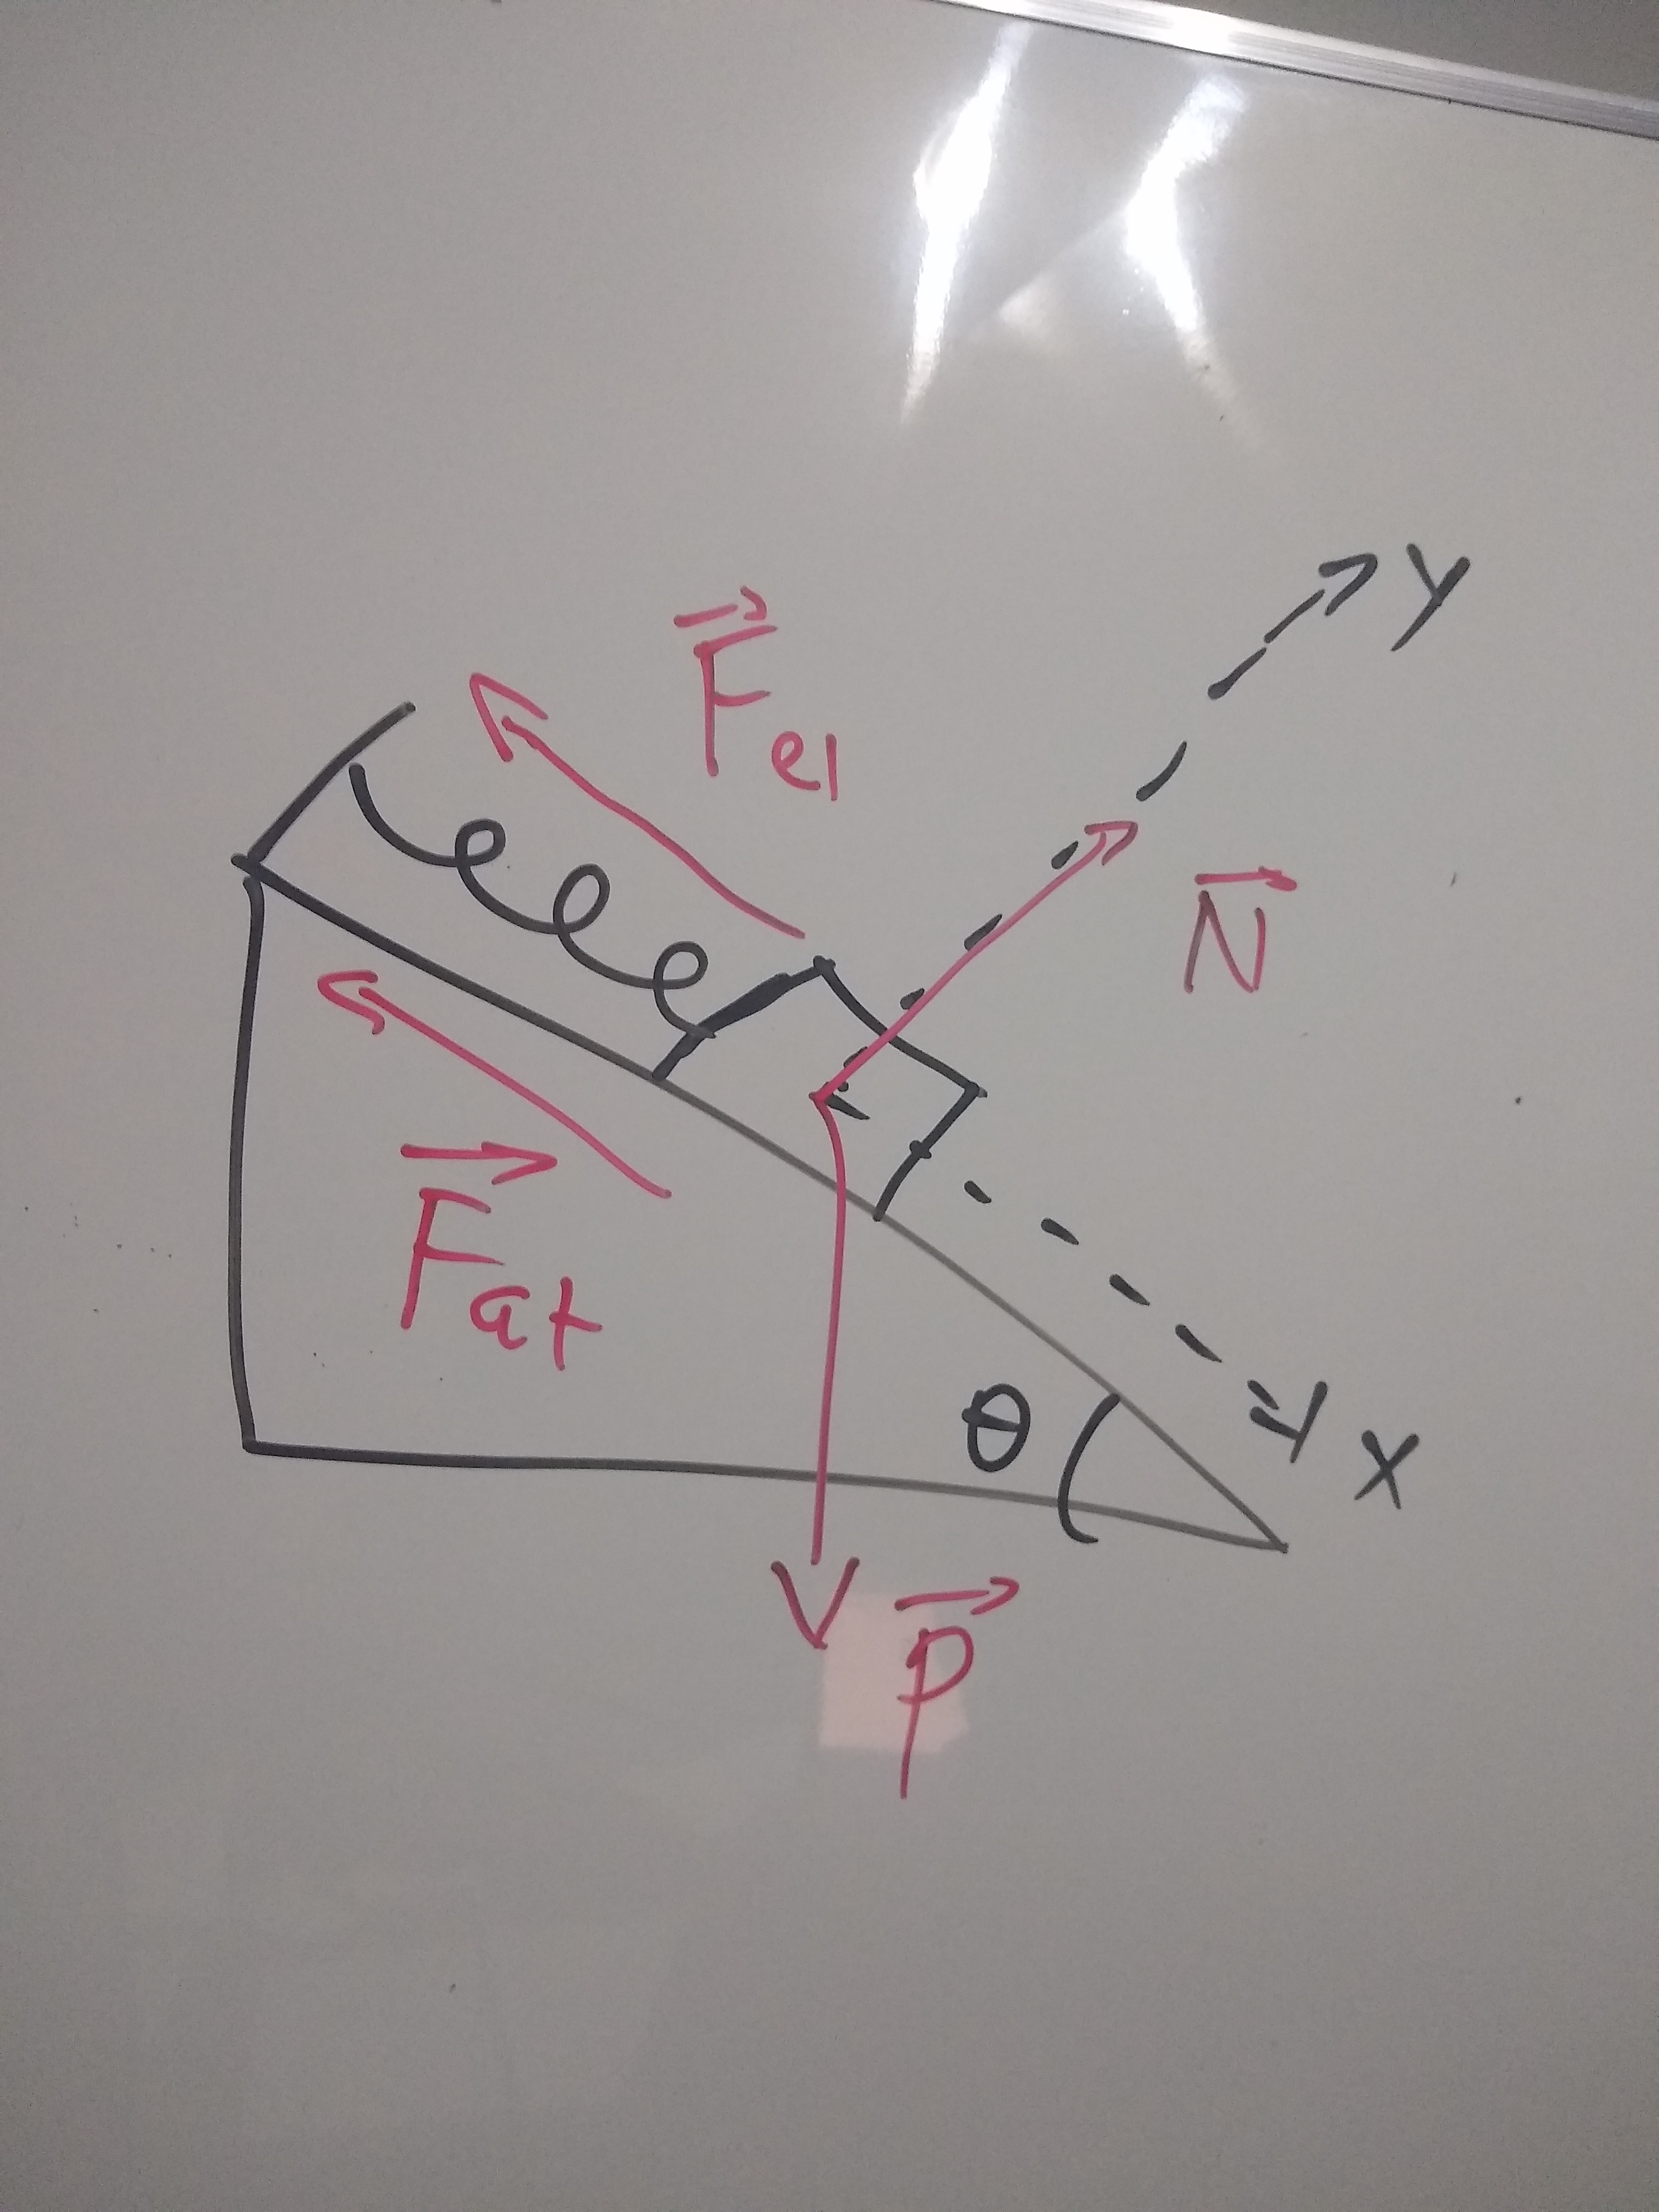 y
F⃗el
N⃗
F⃗at
θ
x
P⃗